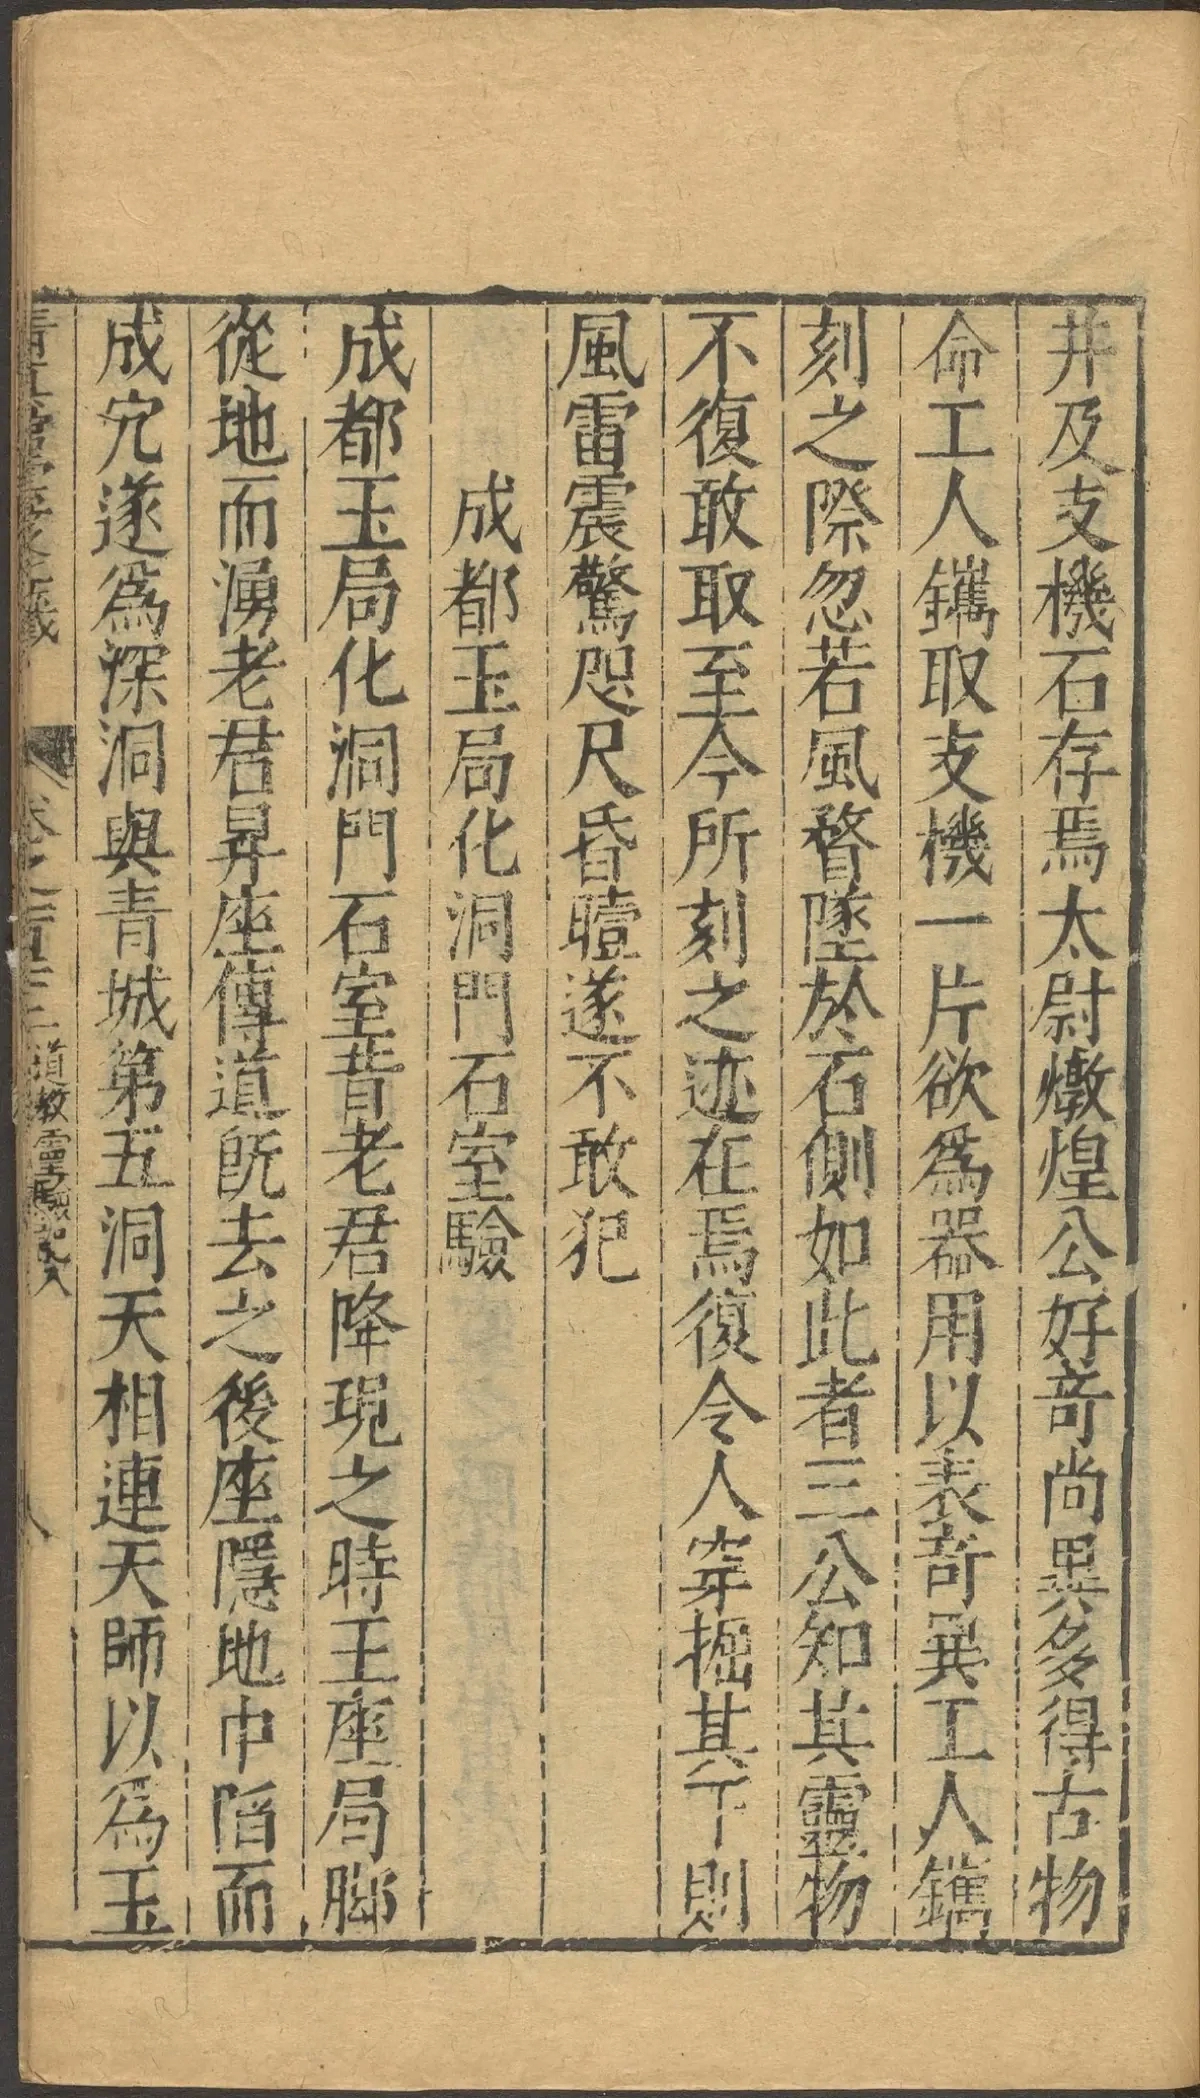 井及支機石存焉太尉燉煌公好奇尚異多得古物
命工人鐫取支機一片欲爲器用以表奇異工人鐫
刻之際忽若風瞀墜於石側如此者三公知其靈物
不復敢取至今所刻之迹在焉復令人穿掘其下則
風雷震驚咫尺昏曀遂不敢犯
成都玉局化洞門石室驗
成都玉局化洞門石室昔老君降現之時玉座局脚
從地而湧老君昇座傳道既去之後座隱地中陷而
成穴遂爲深洞與青城第五洞天相連天師以爲玉
道教靈驗記
八